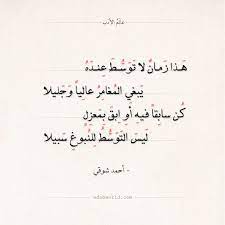 عالم الأدب
هَذا زَمانٌ لا تَوَسُّطَ عِندَهُ
يَبغي المُغامِرَ عالِياً وَجَليلا
كُن سابِقاً فيهِ أَوِ ابقَ بِمَعزِلٍ
لَيسَ التَوَسُّطُ لِلنُبوغِ سَبيلا
- أحمد شوقي -
adabworld.com